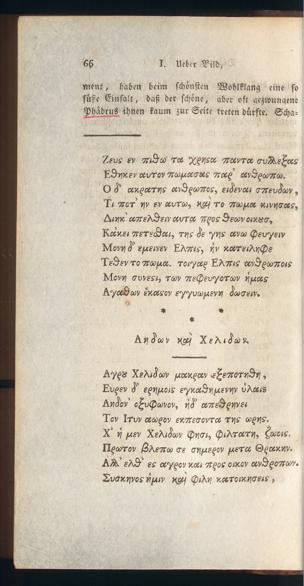 66 I. Ueber Bild,
ment, haben beim schönsten Wohlklang eine so
süße Einfalt, daß der schöne, aber oft gezwungene
Phädrus ihnen kaum zur Seite treten dürfte. Scha-
Ζευς εν πιθω τα χρηςα παντα συλλεξας
Εθηκεν αυτον πωμασας παρ' ανθρωπω.
Ο δ' ακρατης ανθρωπος, ειδεναι σπευδων,
Τι ποτ' ην εν αυτω, και το πωμα κινησας,
Διηκ' απελθειν αυτα προς θεων οικους,
Κακει πετεσθαι, της δε γης ανω φευγειν
Μονη δ' εμεινεν Ελπις, ἡν κατειληφε
Τεθεν το πωμα. τοιγαρ Ελπις ανθρωποις
Μονη συνεςι, των πεφευγοτων ἡμας
Αγαθων ἑκαςον εγγυωμενη δωσειν.
* * *
Αηδων και Χελιδων.
Αγρου Χελιδων μακραν εξεποτηθη,
Ευρεν δ' ερημοις εγκαθημενην ὑλαις
Αηδον' οξυφωνον, ἡ δ' απεθρηνει
Τον Ιτυν αωρον εκπεσοντα της ωρης.
Χ' ἡ μεν Χελιδων φησι, φιλτατη, ζωοις.
Πρωτον βλεπω σε σημερον μετα Θρακην.
Αλλ' ελθ' ες αγρον και προς οικον ανθρωπων.
Συσκηνος ἡμιν και φιλη κατοικησεις,